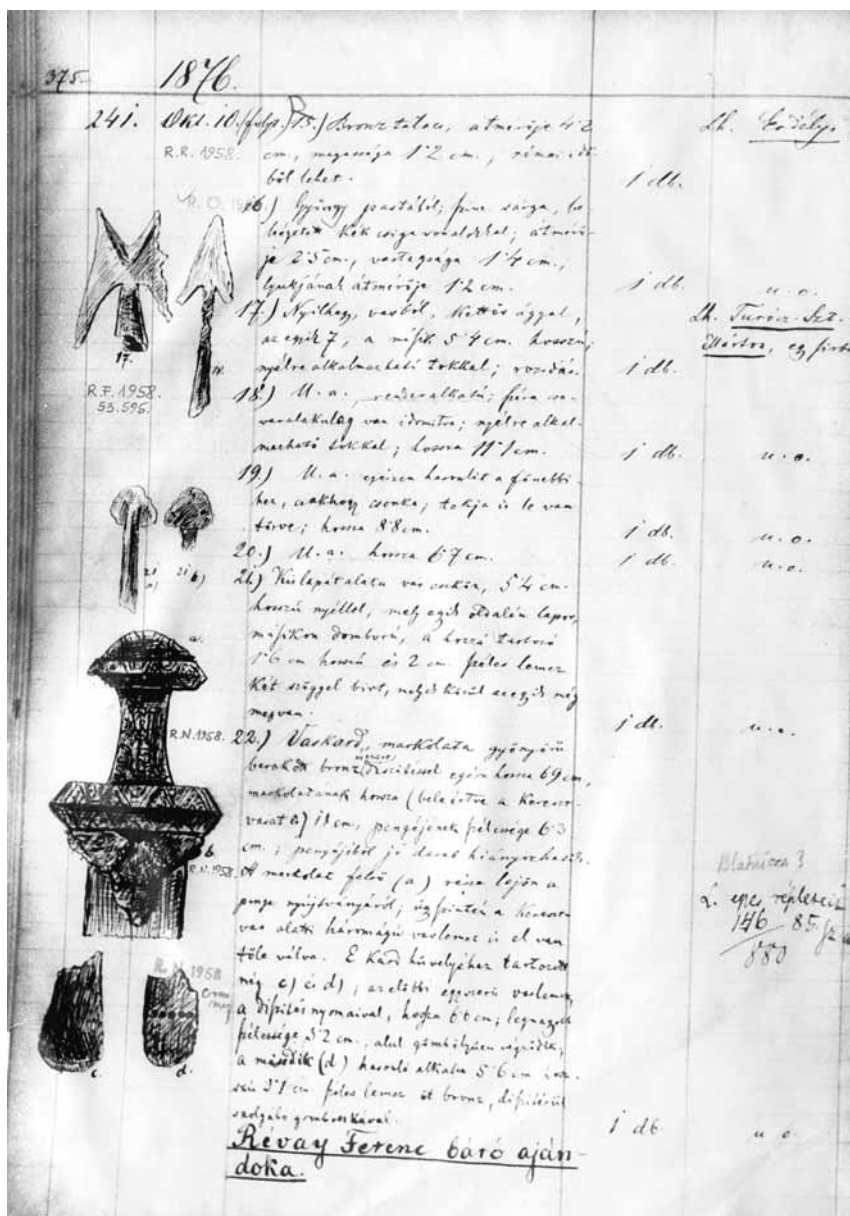 375. 1876.
241. Okt. 10. (folyt.) 15.) Bronz talacs, átmérője 4·2 Lh. Erdély
R.R. 1958. cm., magassága 1·2 cm., római idő-
ből lehet. 1 db.
R.O. 16.) Gyöngy pastából; színe sárga, be-
kék csiga vonalakkal; átmérő-
je 2·5 cm., vastagsága 1·4 cm.,
lyukjának átmérője 1·2 cm. 1 db. u. o.
17.) Nyílhegy, vasból, kettős ággal, Lh. Turócz-Szt.
az egyik 7, a másik 5·4 cm. hosszú; Márton, egy sírból
17. nyélre alkalmazható tokkal; rozsdás. 1 db.
R.F. 1958. 18.) U. a., rendes alkatú; szára csa-
53.595. varalakulag van idomítva; nyélre alkal-
mazható tokkal; hossza 11·1 cm. 1 db. u. o.
19.) U. a. egészen hasonlít a fönebbi-
hez, csakhogy csonka; tokja is le van
törve; hossza 8·8 cm. 1 db. u. o.
20.) U. a. hossza 6·7 cm. 1 db. u. o.
21 a) 21 b) 21.) Kis lapát alakú vas eszköz, 5·4 cm.
hosszú nyéllel, mely egyik oldalán lapos,
a. másikon domború, a hozzá tartozó
1·6 cm hosszú és 2 cm. széles lemez
két szöggel bírt, melyek közül az egyik még
megvan. 1 db. u. o.
R.N. 1958. 22.) Vaskard, markolata gyönyörű
berakott bronz díszítéssel egész hossza 69 cm,
markolatának hossza (bele értve a kereszt-
vasat is) 18 cm, pengéjének szélessége 6·3
b cm.; pengéjéből jó darab hiányzik. Blatnicza 3
R.N. 1958. A markolat felső (a) része lejön a L.
penge nyújtványáról; úgyszintén a kereszt- 146 85.
vas alatti háromágú vaslemez is el van 880
tőle válva. E kard hüvelyéhez tartozott
R.N. 1958 még c) és d), az előbbi egyszerű vaslemez
a díszítés nyomaival, hossza 6·6 cm; legnagyobb
szélessége 3·2 cm., alul gömbölyűen végződik;
c. d. a második (d) hasonló alkatu 5·6 cm hosz-
szú 3·1 cm. széles lemez öt bronz, díszítésül
szolgáló gombocskával. 1 db u. o.
Révay Ferenc báró aján-
doka.